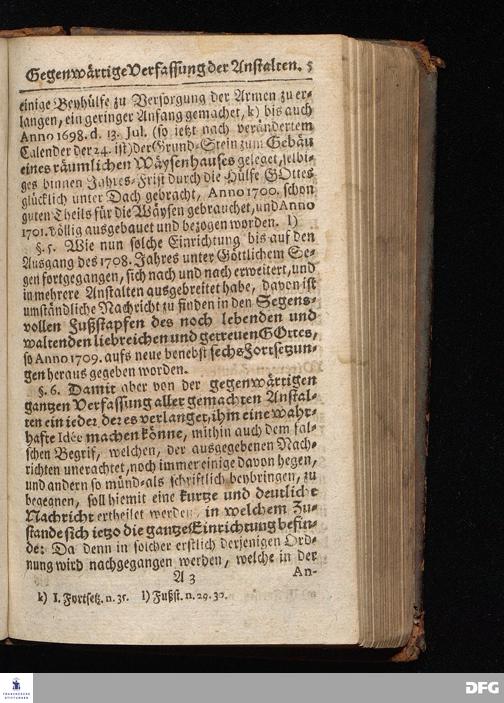 Gegenwärtige Verfassung der Anstalten. 5
einige Beyhülfe zu Versorgung der Armen zu er-
langen, ein geringer Anfang gemachet, k) bis auch
Anno 1698. d. 13. Jul. (so ietzt nach verändertem
Calender der 24. ist) der Grund-Stein zum Gebäu
eines räumlichen Wäysenhauses geleget, selbi-
ges binnen Jahres-Frist durch die Hülfe GOttes
glücklich unter Dach gebracht, Anno 1700. schon
guten Theils für die Wäysen gebrauchet, und Anno
1701. völlig ausgebauet und bezogen worden. l)
§. 5. Wie nun solche Einrichtung bis auf den
Ausgang des 1708. Jahres unter Göttlichem Se-
gen fortgegangen, sich nach und nach erweitert, und
in mehrere Anstalten ausgebreitet habe, davon ist
umständliche Nachricht zu finden in den Segens-
vollen Fußstapfen des noch lebenden und
waltenden liebreichen und getreuen GOttes,
so Anno 1709. aufs neue benebst sechs Fortsetzun-
gen heraus gegeben worden.
§. 6. Damit aber von der gegenwärtigen
gantzen Verfassung aller gemachten Anstal-
ten ein ieder, der es verlanget, ihm eine wahr-
hafte Idée machen könne, mithin auch dem fal-
schen Begrif, welchen, der ausgegebenen Nach-
richten unerachtet, noch immer einige davon hegen,
und andern so münd- als schriftlich beybringen, zu
begegnen, soll hiemit eine kurtze und deutliche
Nachricht ertheilet werden, in welchem Zu-
stande sich ietzo die gantze Einrichtung befin-
de: Da denn in solcher erstlich derjenigen Ord-
nung wird nachgegangen werden, welche in der
A 3 An-
k) I. Fortsetz. n. 35. l) Fußst. n. 29. 30.
FRANCKESCHE
STIFTUNGEN
DFG